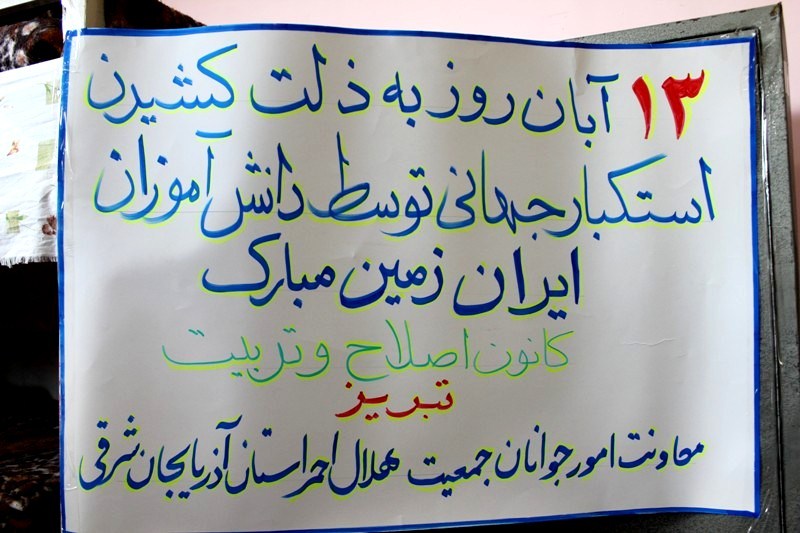 ۱۳ آبان روز به ذلت کشیدن
استکبار جهانی توسط دانش آموزان
ایران زمین مبارک
کانون اصلاح و تربیت
تبریز
معاونت امور جوانان جمعیت هلال احمر استان آذربایجان شرقی